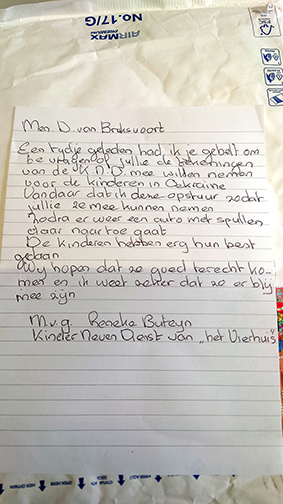 AIRMAX
No.17/G
Men. D. van Bruksvoort
Een tydje geleden had ik je gebelt om
te vragen of jullie de tekeningen
van de K.N.D. mee wilden nemen
voor de kinderen in Oekraine
Vandaar dat ik deze opstuur zodat
jullie ze mee kunnen nemen
zodra er weer een auto met spullen
daar naar toe gaat
De kinderen hebben erg hun best
gedaan
Wy hopen dat ze goed terecht ko-
men en ik weet zeker dat ze er bly
mee zyn
M.v.g. Reneke Buteyn
Kinder Neven Dienst van „het Vierhuis"
HIER OPENEN
OPEN HERE